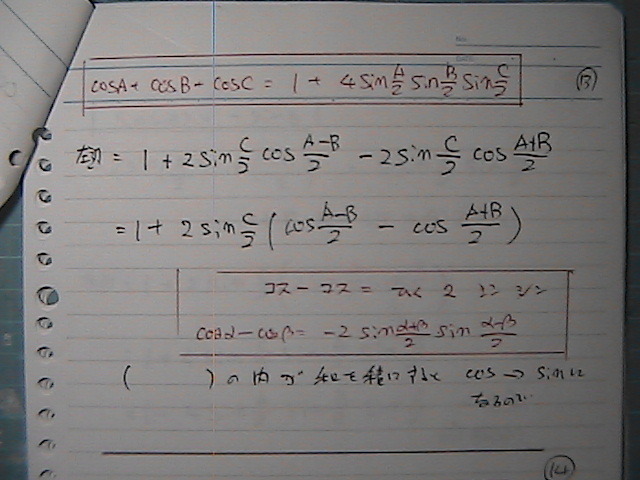 cosA + cosB + cosC = 1 + 4 sin A/2 sin B/2 sin C/2
⑬
左辺 = 1 + 2 sin C/2 cos (A-B)/2 - 2 sin C/2 cos (A+B)/2
= 1 + 2 sin C/2 ( cos (A-B)/2 - cos (A+B)/2 )
コス - コス =
cosα - cosβ = -2 sin (α+β)/2 sin (α-β)/2
( ) の内が 和を積に cos → sin に
なるので
⑭